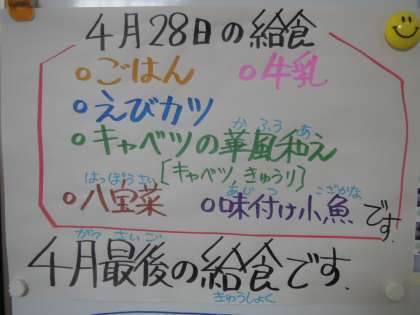 4月28日の給食
○ごはん ○牛乳
○えびカツ
かふうあ
○キャベツの華風和え
[キャベツ,きゅうり]
はっぽうさい あじつ こざかな
○八宝菜 ○味付け小魚です.
がつさいご
4月最後の給食です.
きゅうしょく